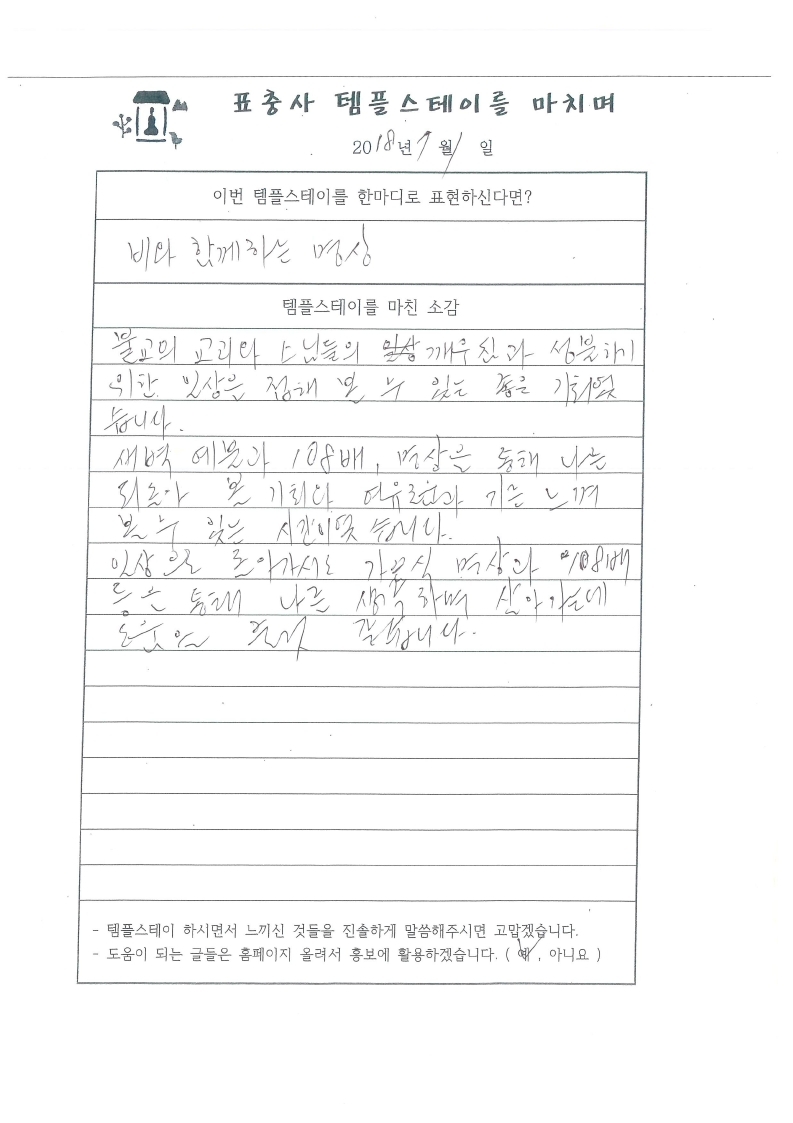 표충사 템플스테이를 마치며
2018년 7월 1일
이번 템플스테이를 한마디로 표현하신다면?
비와 함께하는 명상
템플스테이를 마친 소감
불교의 교리와 스님들의 깨우친과 성불하기
위한 일상을 접해 볼 수 있는 좋은 기회였
습니다.
새벽 예불과 108배, 명상을 통해 나를
되돌아 볼 기회와 여유로움과 기를 느껴
볼 수 있는 시간이였습니다.
일상으로 돌아가서도 가끔식 명상과 108배
등을 통해 나를 생각하며 살아가는데
도움을 줄것 같습니다.
- 템플스테이 하시면서 느끼신 것들을 진솔하게 말씀해주시면 고맙겠습니다.
- 도움이 되는 글들은 홈페이지 올려서 홍보에 활용하겠습니다. ( 예 , 아니요 )